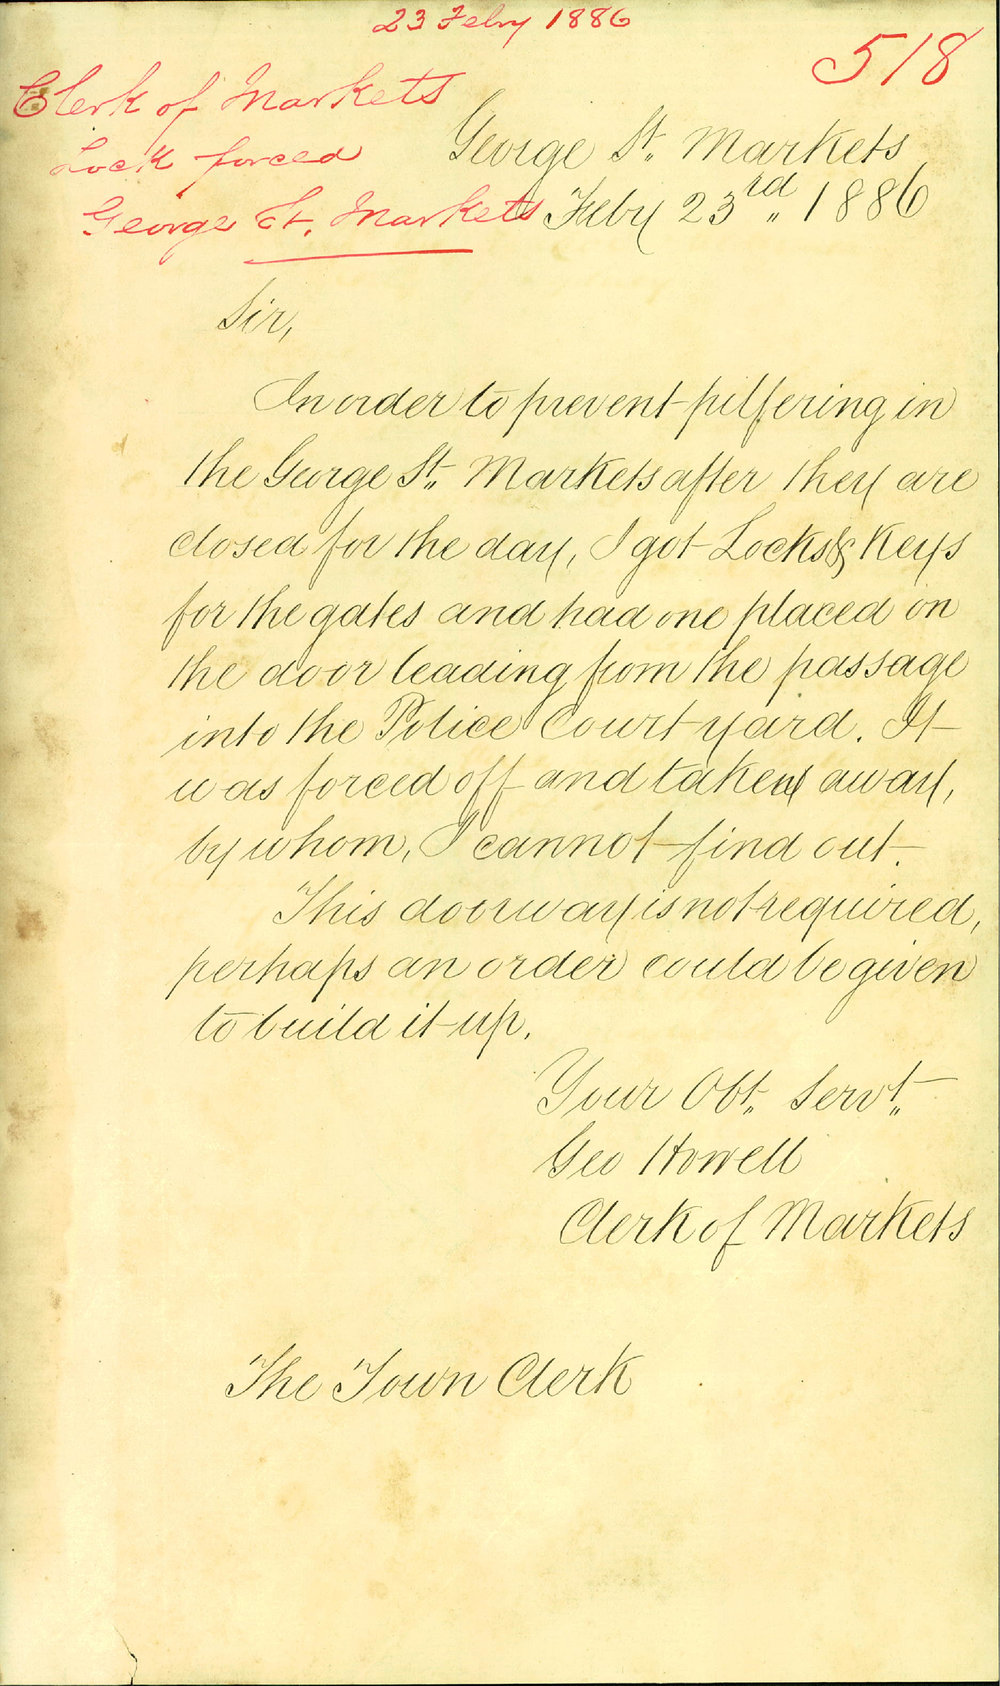 23 Feby 1886
518
Clerk of Markets
Lock forced
George St. Markets
George St. Markets
Feby 23rd 1886
Sir,
In order to prevent pilfering in
the George St. Markets after they are
closed for the day, I got Locks & Keys
for the gates and had one placed on
the door leading from the passage
into the Police Court yard. It
was forced off and taken away,
by whom, I cannot find out.
This doorway is not required,
perhaps an order could be given
to build it up.
Your Obt. Servt.
Geo Howell
Clerk of Markets
The Town Clerk